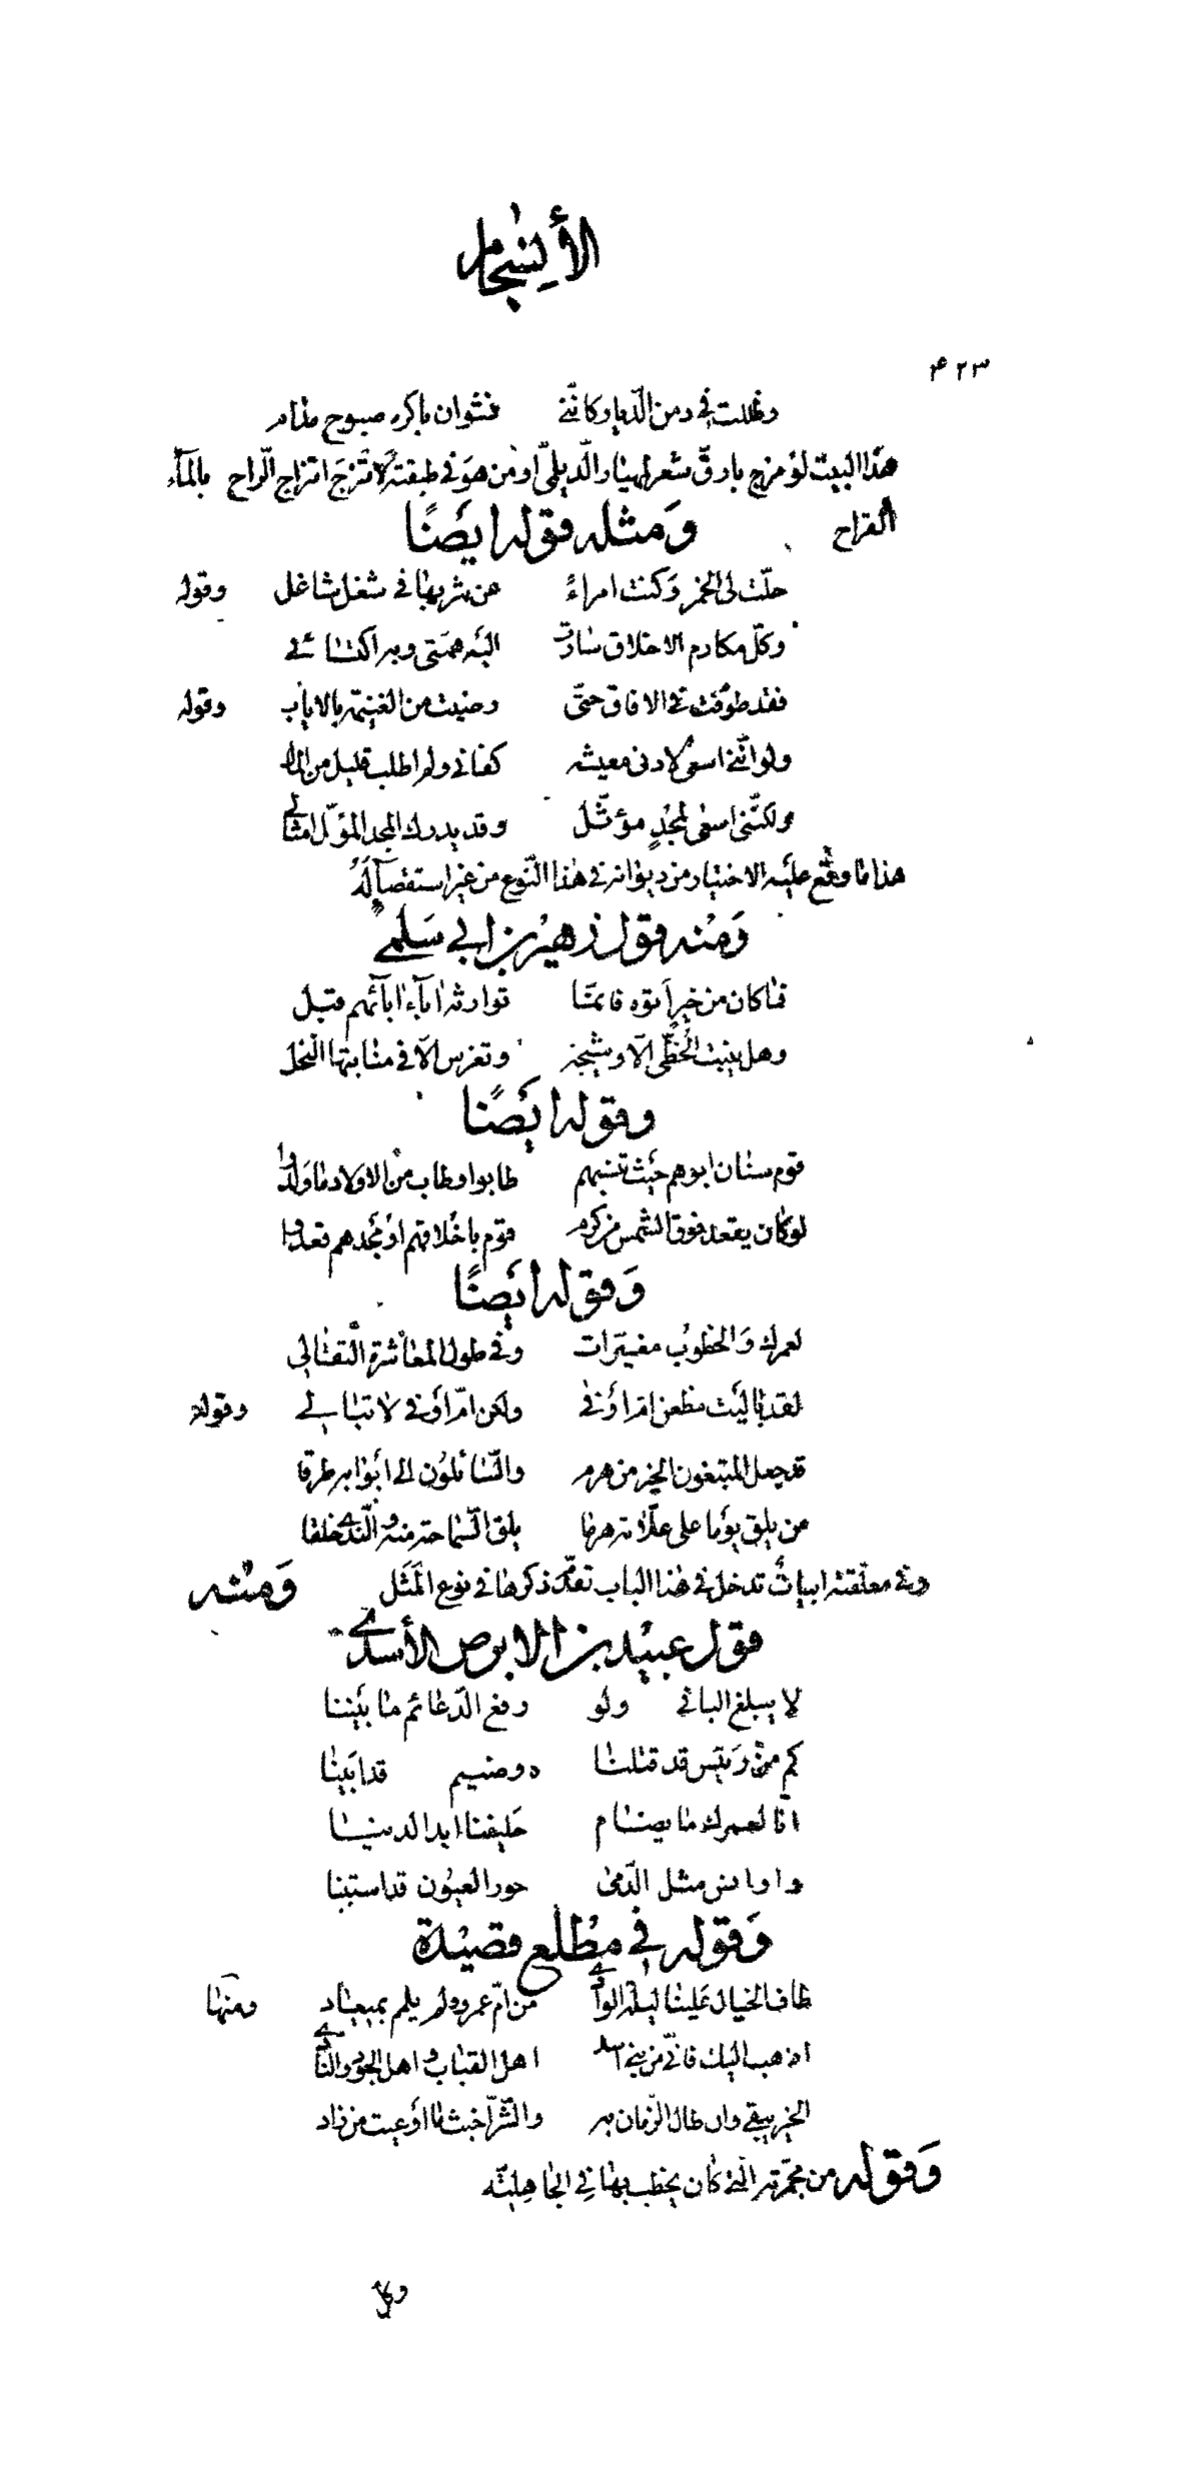 الأنسجام
۴۲۳
وظللت في دمن الدّيار كانّني نشوان باكره صبوح مدام
هذا البيت لو مزج بارقّ شعر لمهيار الدّيلميّ او من هو في طبقته لامتزج امتزاج الرّاح بالمآء
القراح ومثله قوله ايضًا
حلّت لى الخمر وكنت امراءً عن شربها في شغل شاغل وقوله
وكلّ مكارم الاخلاق سارت اليه همّتي وبه اكتسابي
فقد طوّفت في الافاق حتّى رضيت من الغنيمة بالاياب وقوله
ولو انّني اسعى لادنى معيشه كفاني ولم اطلب قليل من المال
ولكنّنى اسعى لمجدٍ مؤثّل وقد يدرك المجد المؤثّل امثالي
هذا ما وقع عليه الاختيار من ديوانه في هذا النّوع من غير استقصآءٍ له
ومنه قول زهير بن ابي سلمى
فما كان من خير أتوه فانمّا توارثه اباء ابآئهم قبل
وهل ينبت الخطّي الّا وشيجه وتغرس الّا في منابتها النخل
وقوله ايضًا
قوم سنان ابوهم حيث تنسبهم طابوا وطاب من الاولاد ما ولدوا
لو كان يقعد فوق الشمس من كرم قوم باخلاقهم او مجدهم قعدوا
وقوله ايضًا
لعمرك والخطوب مغيّرات وفي طول المعاشرة التّقالي
لقد باليت مظعن ام اوفى ولكن امّ اوفى لا تبالي وقوله
قد جعل المبتغون الخير من هرم والسّائلون الى ابوابه طرقا
من يلق يوما على علّاته هرما يلق السّماحة منه والنّدى خلقا
وفي معلقته ابياتٌ تدخل في هذا الباب تقدّم ذكرها في نوع المثل ومنه
قول عبيد بن الابرص الأسدي
لا يبلغ الباني ولو رفع الدّعائم ما بنينا
كم من رئيس قد قتلنا ه وضيم قد ابينا
انّا لعمرك ما يضام حليفنا ابدا لدينا
واوانس مثل الدّمى حور العيون قد استبينا
وقوله في مطلع قصيدة
طاف الخيال علينا ليلة الوادي من امّ عمرو ولم يلمم بميعاد ومنها
اذهب اليك فانّي من بني اسد اهل القباب واهل الجود والنّادي
الخير يبقى وان طال الزّمان به والشّرّ اخبث ما اوعيت من زاد
وقوله من مجمهرته الّتي كان يخطب بها في الجاهليّه
وكل